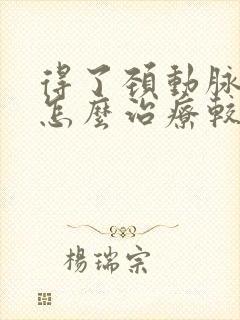 得了頚動脉
怎麼治療較
楊瑞宗